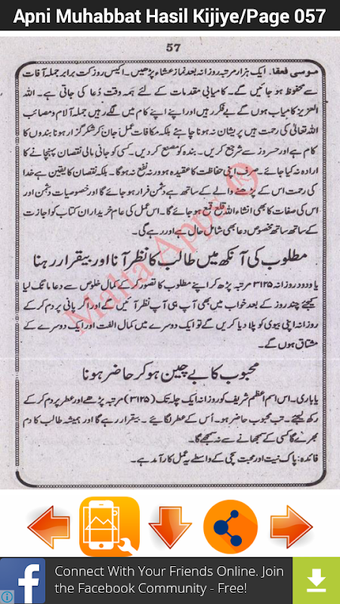 Apni Muhabbat Hasil Kijiye/Page 057
57
موسیٰ فعفا۔ ایک ہزار مرتبہ روزانہ بعد نماز عشاء پڑھیں۔ اکیس روز کے برابر جملہ آفات
سے محفوظ ہو جائیں گے۔ کامیابی مقدمات کے لئے ہمہ وقت دعا کی جاتی ہے۔ اللہ
العزیز کامیاب ہوں گے بے فکر رہیں اور اپنے اپنے کام میں لگے رہیں جملہ آلام ومصائب
اللہ تعالٰی کی رحمت ہیں پریشان نہ ہونا چاہئے بلکہ مکافات عمل جان کر شکر گزار ہونا بندوں کا
کام ہے اور حسد وسر شر جمع کریں۔ بندہ کو مطیع کریں۔ کسی کو جانی مالی نقصان پہنچانے کا
ارادہ نہ کیا جائے۔ صرف اپنی حفاظت کا عقیدہ ہو ورنہ نفع نہ ہوگا۔ بلکہ نقصان کا یقین ہے خدا
کی رحمت اس کے پڑھنے والے کے ساتھ ہے دشمن فرار ہو جائے گا اور خصوصیات دشمن اور
اس کی صفات کا بھی انشاء اللہ قلع قمع ہو جائے گا۔ اس عمل کی عام خریداران کتاب کو اجازت
کے ساتھ ساتھ مخصوص دعا بھی شامل حال ہے اور رہے گی۔
مطلوب کی آنکھ میں طالب کا نظر آنا اور بیقرار رہنا
یا ودود روزانہ ۳۱۲۵ مرتبہ پڑھ کر اپنے مطلوب کا تصور کر کے کمال خلوص سے دعا مانگ لیا
کیجئے چند روز کے بعد خواب میں بھی آپ ہی آپ نظر آئیں گے اور اگر پانی پر دم کر کے
روزانہ اپنی بیوی کو پلا دیا کریں گے تو ایک دوسرے میں کمال الفت اور ایک دوسرے کے
مشتاق ہوں گے۔
محبوب کا بے چین ہو کر حاضر ہونا
یا باری۔ اس اسم اعظم شریف کو روزانہ ایک چلہ تک (۳۱۲۵) مرتبہ پڑھے اور عطر پر دم کر کے
رکھ لیجئے۔ جب محبوب حاضر ہو۔ اُس کے عطر لگائے۔ بیقرار رہے گا اور ہمیشہ طالب کا دم
بھرے گا کسی کے سمجھانے سے نہ سمجھے گا۔
فائدہ: پاک نیت اور محبت سچی کے واسطے یہ عمل کار آمد ہے۔
Malta Apps
Connect With Your Friends Online. Join
the Facebook Community - Free!